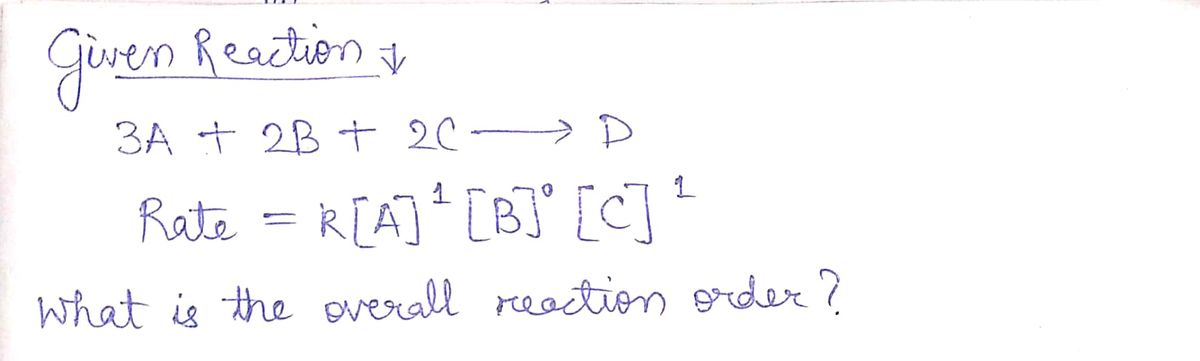 Given Reaction ↓
3A + 2B + 2C ⟶ D
Rate = k[A]¹ [B]⁰ [C]¹
What is the overall reaction order?